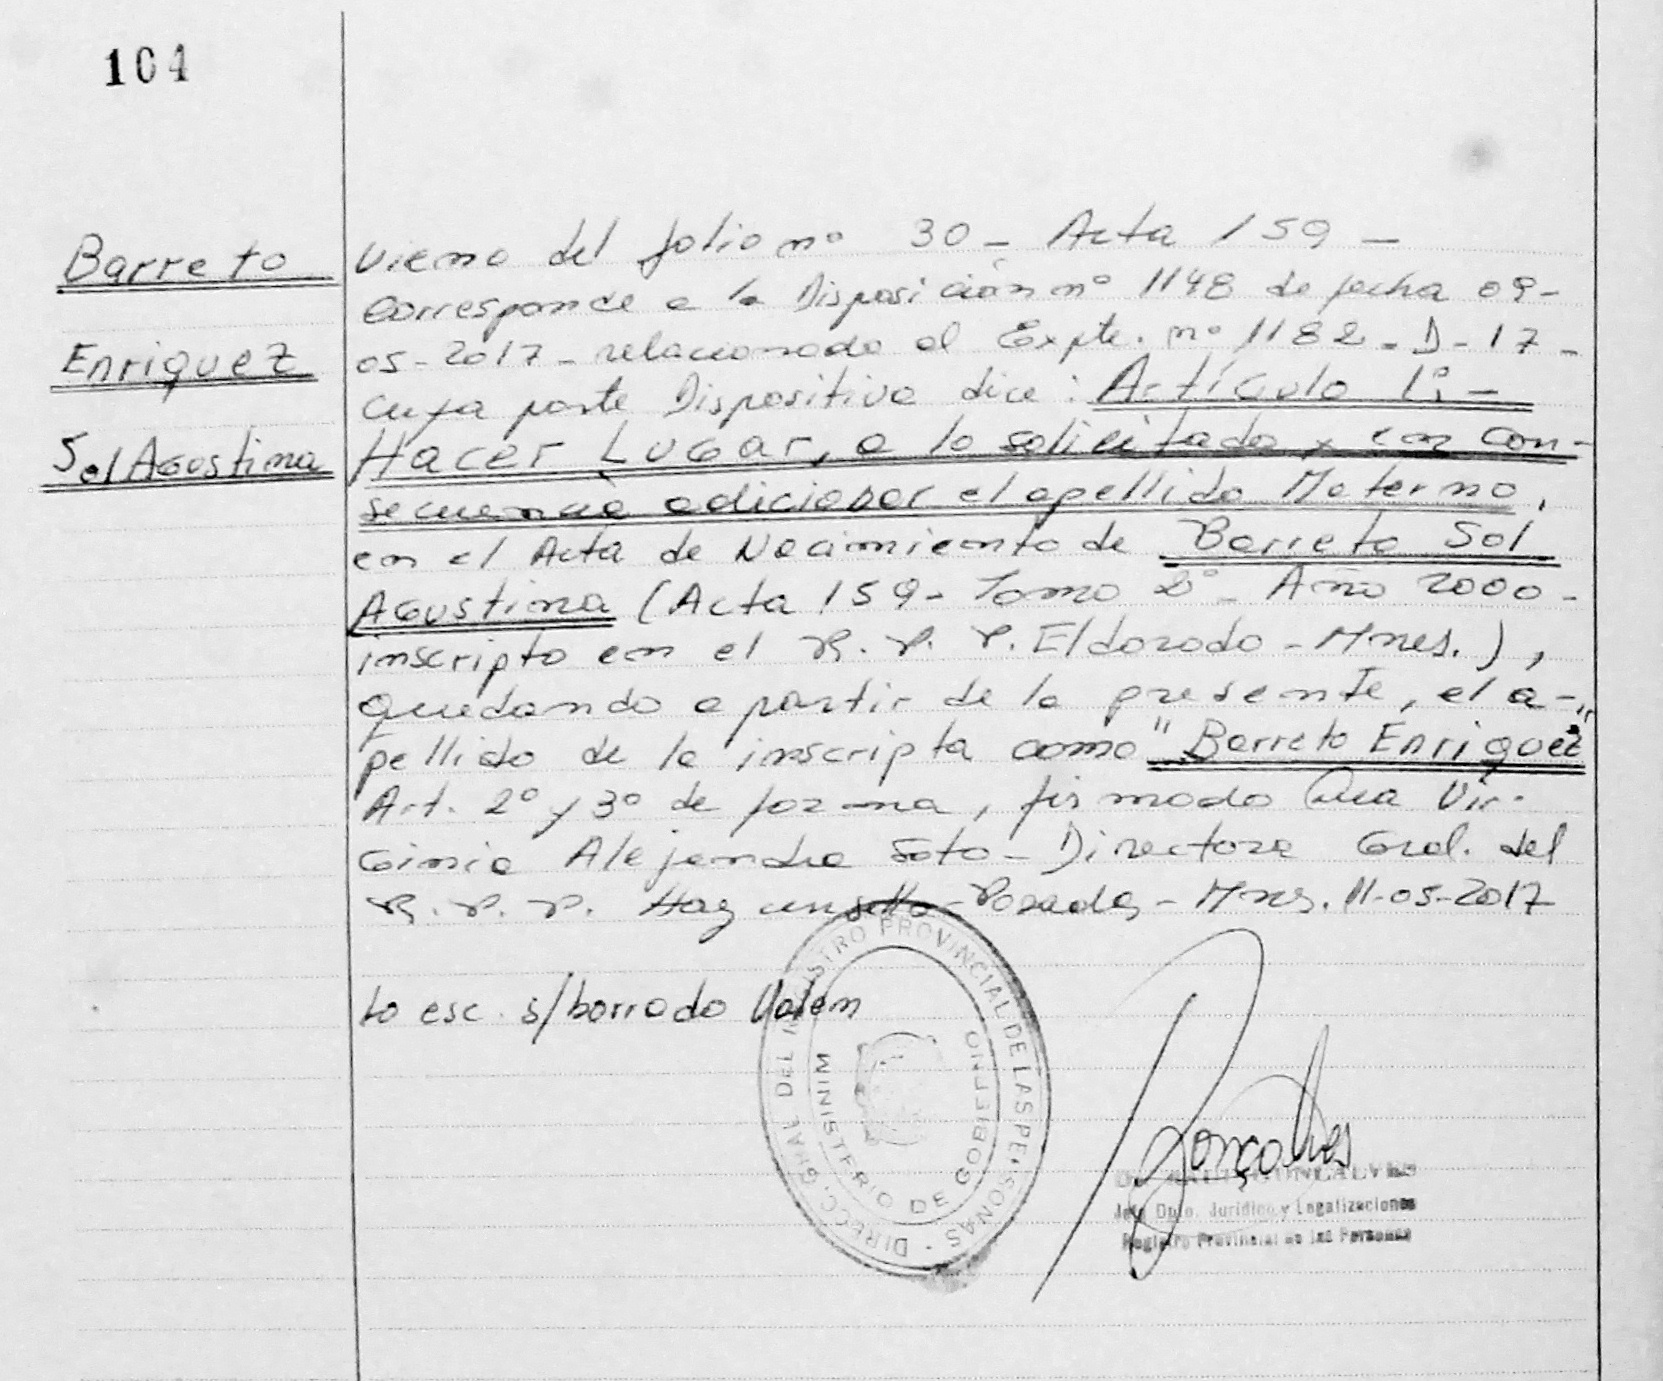 104
Barreto
Enriquez
Sol Agostina
Viene del folio nº 30 - Acta 159 -
Corresponde a la Disposición nº 1148 de fecha 09-
05-2017 - relacionado al Expte. nº 1182 - D - 17 -
Cuya parte Dispositiva dice: Artículo 1º: -
Hacer Lugar, a lo solicitado, en con-
secuencia adicionar el apellido Materno,
en el Acta de Nacimiento de Barreto Sol
Agustina (Acta 159 - Tomo 2º - Año 2000 -
inscripto en el R. P. P. Eldorado - Mnes.),
quedando a partir de la presente, el a-
pellido de la inscripta como "Barreto Enriquez"
Art. 2º y 3º de forma, firmado Dra Vir-
ginia Alejandra Soto - Directora Gral. del
R. P. P. Hay un sello - Posadas - Mnes. 11-05-2017
Lo esc. s/borrado Valen
DIRECC. GRAL DEL REGISTRO PROVINCIAL DE LAS PERSONAS
MINISTERIO DE GOBIERNO
Gonçalves
GONÇALVES
Jefe Dpto. Jurídico y Legalizaciones
Registro Provincial de las Personas